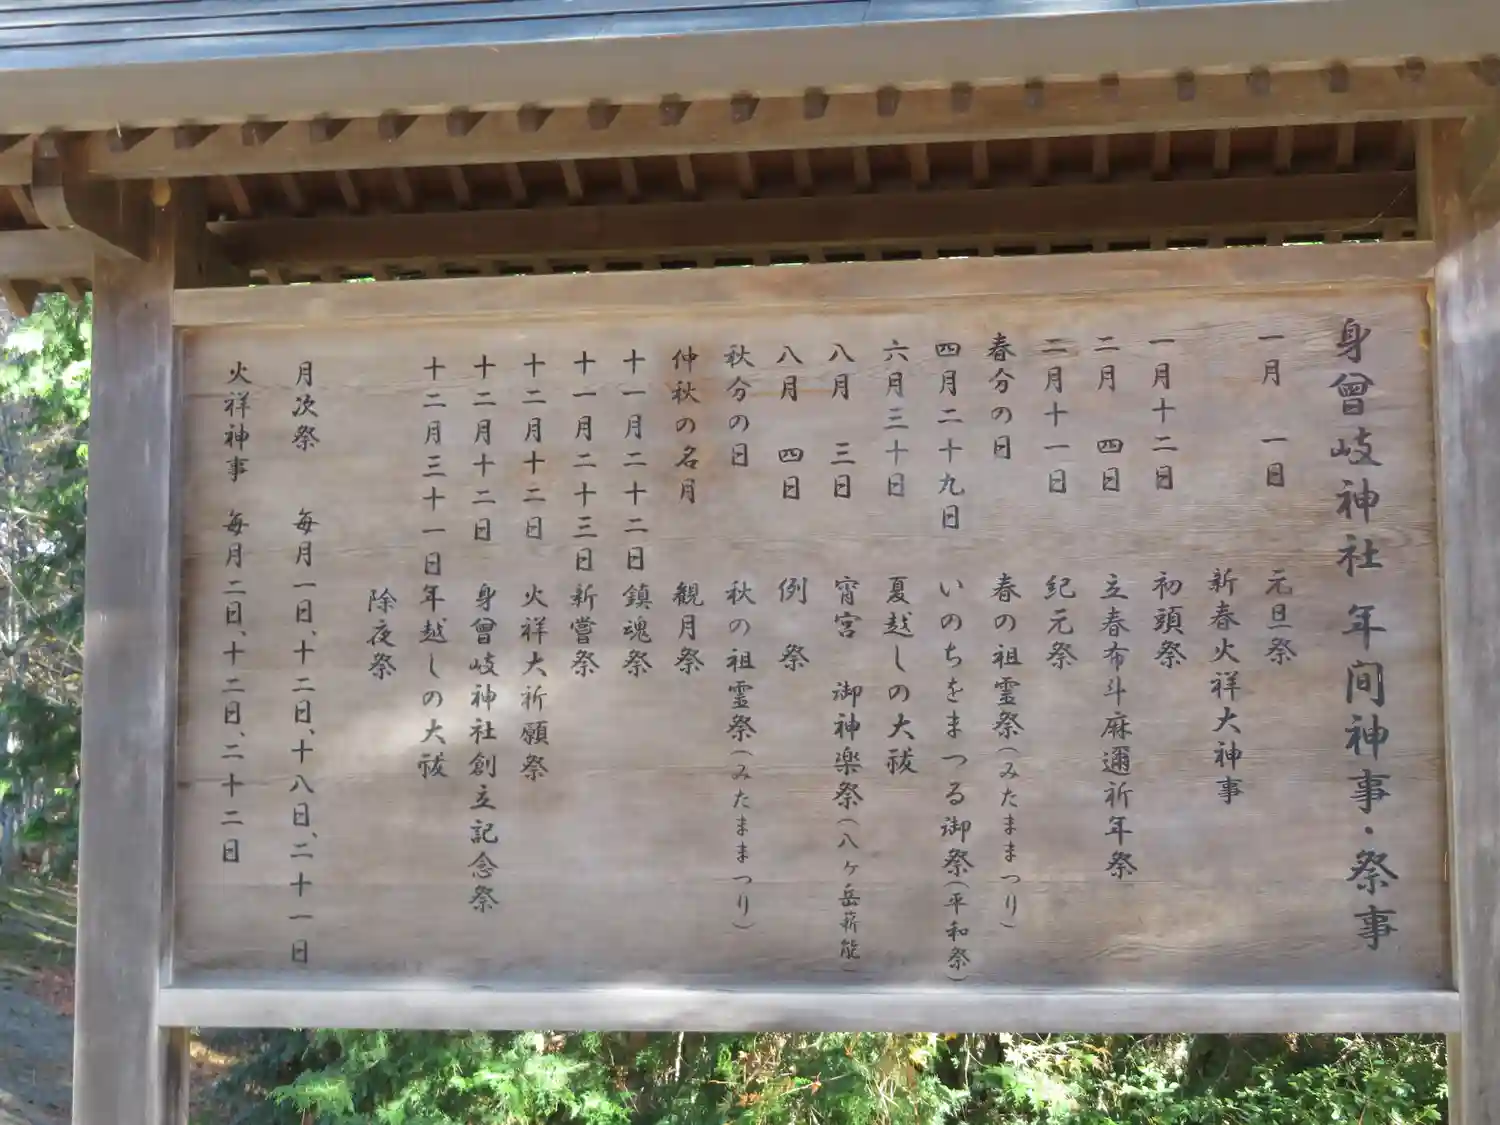 身曾岐神社 年間神事・祭事
一月 一日 元旦祭
新春火祥大神事
一月十二日 初頭祭
二月 四日 立春布斗麻邇祈年祭
二月十一日 紀元祭
春分の日 春の祖霊祭(みたままつり)
四月二十九日 いのちをまつる御祭(平和祭)
六月三十日 夏越しの大祓
八月 三日 宵宮 御神楽祭(八ヶ岳薪能)
八月 四日 例祭
秋分の日 秋の祖霊祭(みたままつり)
仲秋の名月 観月祭
十一月二十二日 鎮魂祭
十一月二十三日 新嘗祭
十二月十二日 火祥大祈願祭
十二月十二日 身曾岐神社創立記念祭
十二月三十一日 年越しの大祓
除夜祭
月次祭 毎月一日、十二日、十八日、二十一日
火祥神事 毎月二日、十二日、二十二日